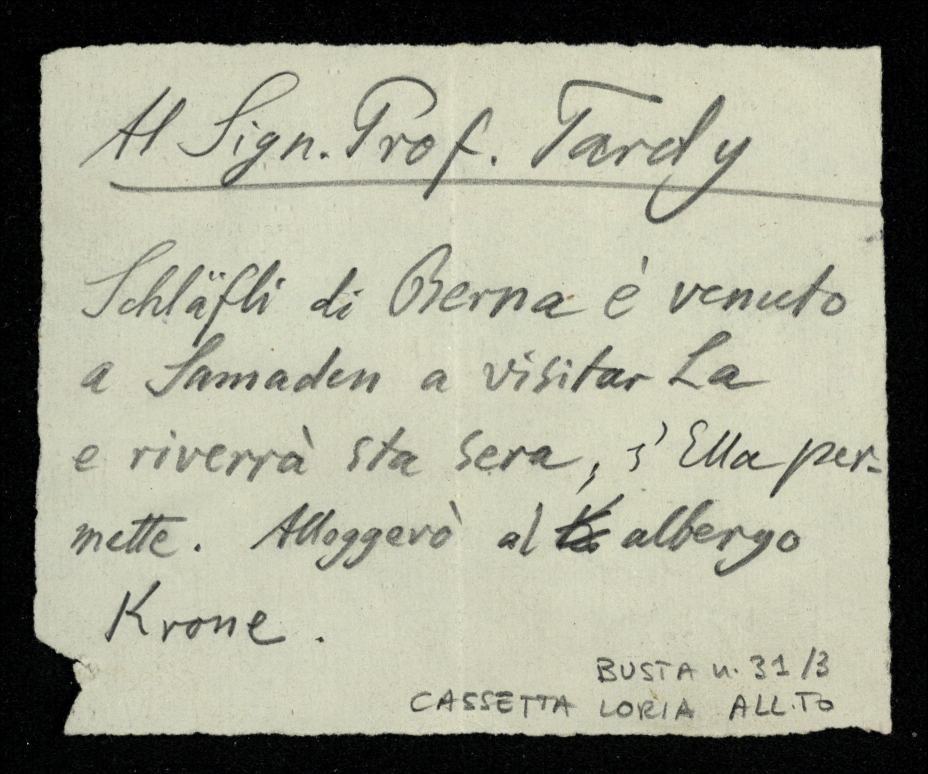 Al Sign. Prof. Tardy
Schläfli di Berna è venuto
a Samaden a visitar La
e riverrà sta sera, s'Ella per-
mette. Alloggerò al albergo
Krone.
BUSTA n. 31/3
CASSETTA LORIA ALL.TO